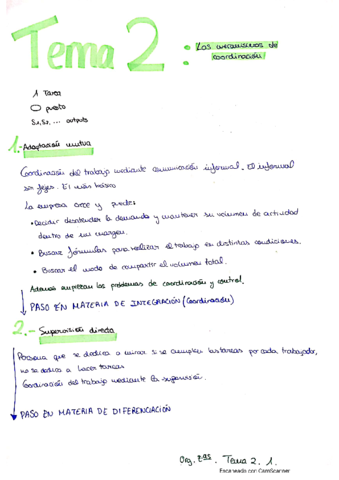 Tema 2
: Los mecanismos de
coordinación
1 Tarea
O puesto
S1, S2, ... outputs
1.- Adaptación mutua
Coordinación del trabajo mediante comunicación informal. El informal
ser jefes. El más básico
La empresa crece y puede:
• Decidir desatender la demanda y mantener su volumen de actividad
dentro de un margen.
• Buscar fórmulas para realizar el trabajo en distintas condiciones.
• Buscar el modo de compartir el volumen total.
Además empiezan los problemas de coordinación y control.
PASO EN MATERIA DE INTEGRACIÓN (Coordinación)
2.- Supervisión directa
Persona que se dedica a mirar si se cumplen las tareas por cada trabajador,
no se dedica a hacer tareas
Coordinación del trabajo mediante la supervisión.
PASO EN MATERIA DE DIFERENCIACIÓN
Org. Eas Tema 2. 1.
Escaneado con CamScanner